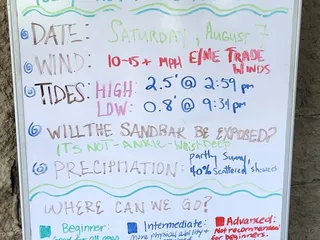 DATE: SATURDAY, AUGUST 7
WIND: 10-15+ MPH E/NE TRADE WINDS
TIDES: HIGH: 2.5' @ 2:59 pm
LOW: 0.8' @ 9:34 pm
WILL THE SANDBAR BE EXPOSED?
ITS NOT - ANKLE - Waist Deep
PRECIPITATION: partly sunny,
40% scattered showers
WHERE CAN WE GO?
Beginner: Intermediate: Advanced:
Good for all ages more physical ability + Not recommended
for beginners.